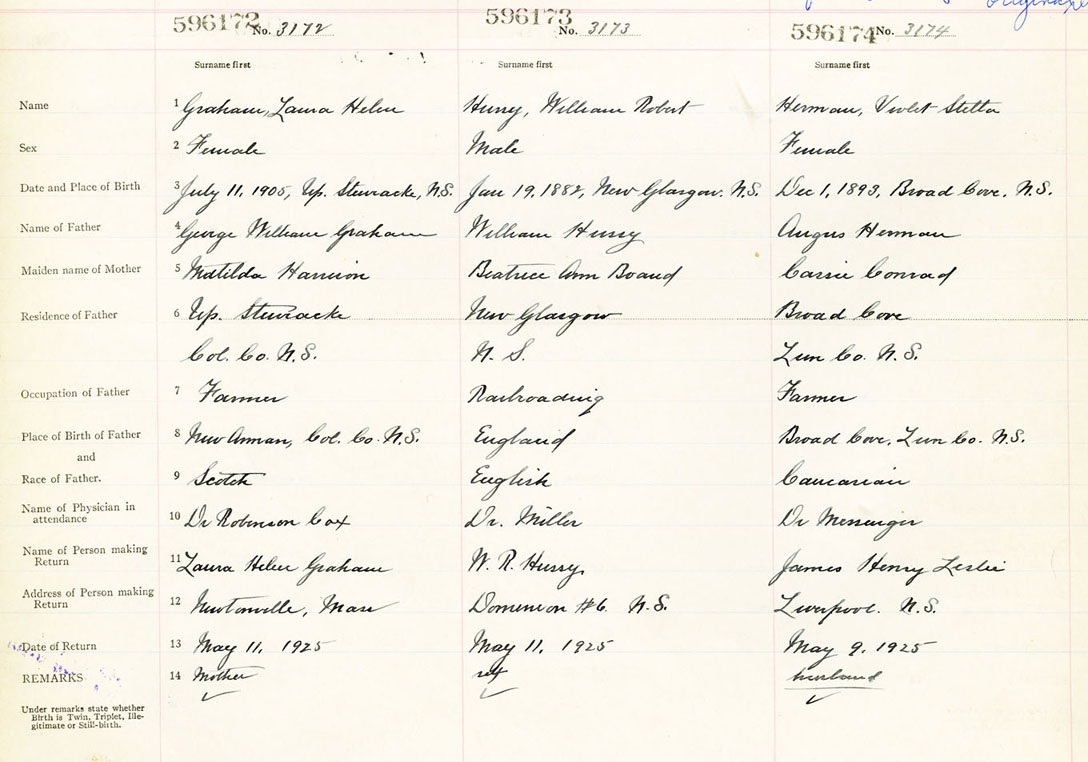 596172 No. 3172 596173 No. 3173 596174 No. 3174
Surname first Surname first Surname first
Name 1 Graham, Laura Helen Hussy, William Robert Herman, Violet Stella
Sex 2 Female Male Female
Date and Place of Birth 3 July 11, 1905, Up. Stewiacke, N.S. Jan 19, 1882, New Glasgow. N.S. Dec 1, 1893, Broad Cove. N.S.
Name of Father 4 George William Graham William Hussy Angus Herman
Maiden name of Mother 5 Matilda Harrison Beatrice Ann Boand Carrie Conrad
Residence of Father 6 Up. Stewiacke New Glasgow Broad Cove
Col. Co. N.S. N. S. Lun Co. N.S.
Occupation of Father 7 Farmer Railroading Farmer
Place of Birth of Father 8 New Annan, Col. Co. N.S. England Broad Cove, Lun Co. N.S.
and
Race of Father. 9 Scotch English Caucasian
Name of Physician in
attendance 10 Dr Robinson Cox Dr. Miller Dr Messenger
Name of Person making
Return 11 Laura Helen Graham W. R. Hussy James Henry Leslie
Address of Person making
Return 12 Newtonville, Mass Dominion #6 N.S. Liverpool. N.S.
Date of Return 13 May 11, 1925 May 11, 1925 May 9, 1925
REMARKS 14 Mother self husband
Under remarks state whether
Birth is Twin, Triplet, Ille-
gitimate or Still-birth.